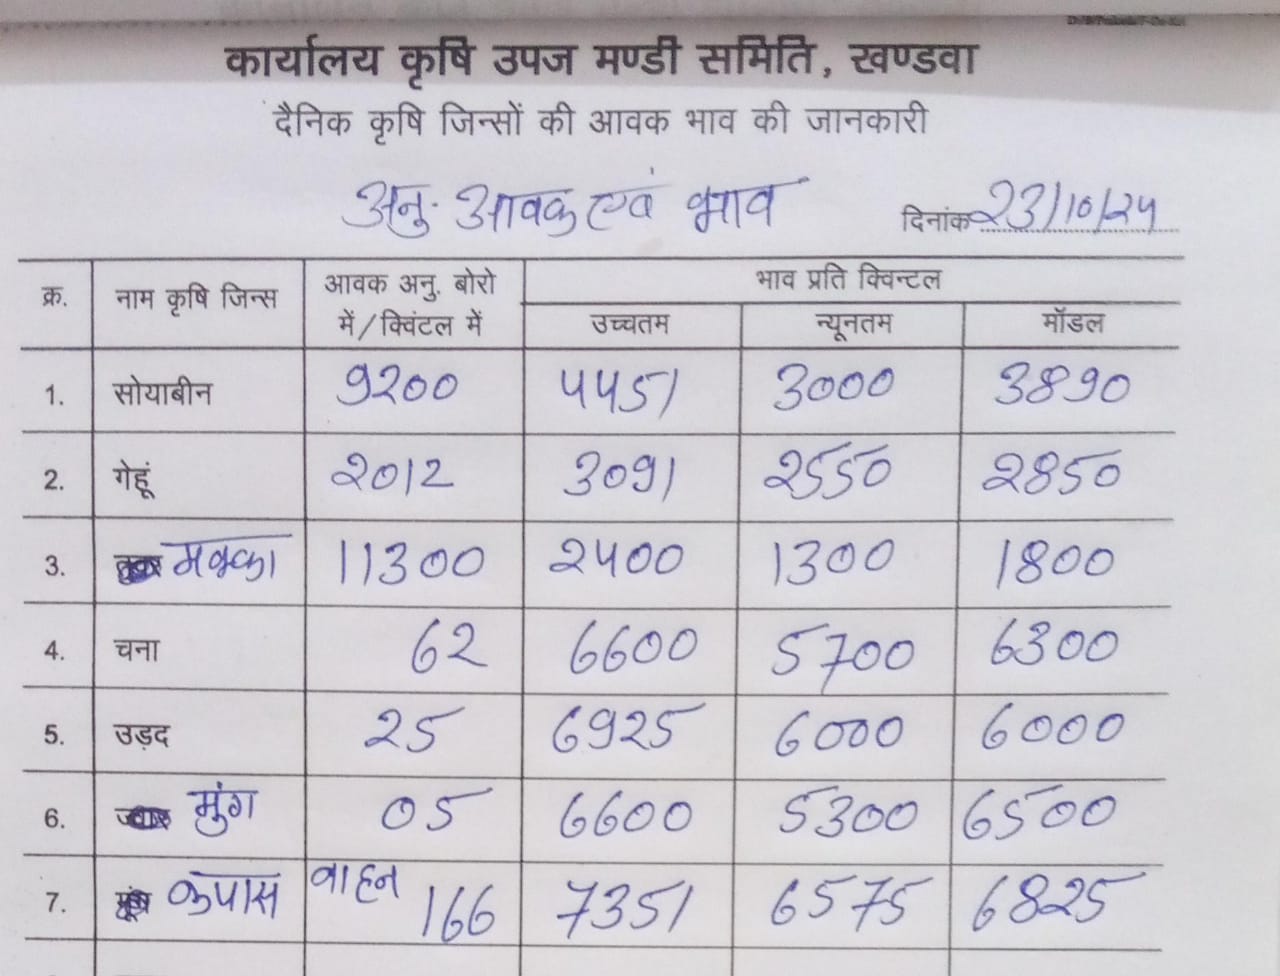 कार्यालय कृषि उपज मण्डी समिति, खण्डवा
दैनिक कृषि जिन्सों की आवक भाव की जानकारी
अनु. आवक एवं भाव दिनांक 23/10/24
क्र. नाम कृषि जिन्स आवक अनु. बोरो में/क्विंटल में भाव प्रति क्विन्टल
उच्चतम न्यूनतम मॉडल
1. सोयाबीन 9200 4451 3000 3890
2. गेहूं 2012 3091 2550 2850
3. मक्का 11300 2400 1300 1800
4. चना 62 6600 5700 6300
5. उड़द 25 6925 6000 6000
6. मुंग 05 6600 5300 6500
7. कपास वाहन 166 7351 6575 6825